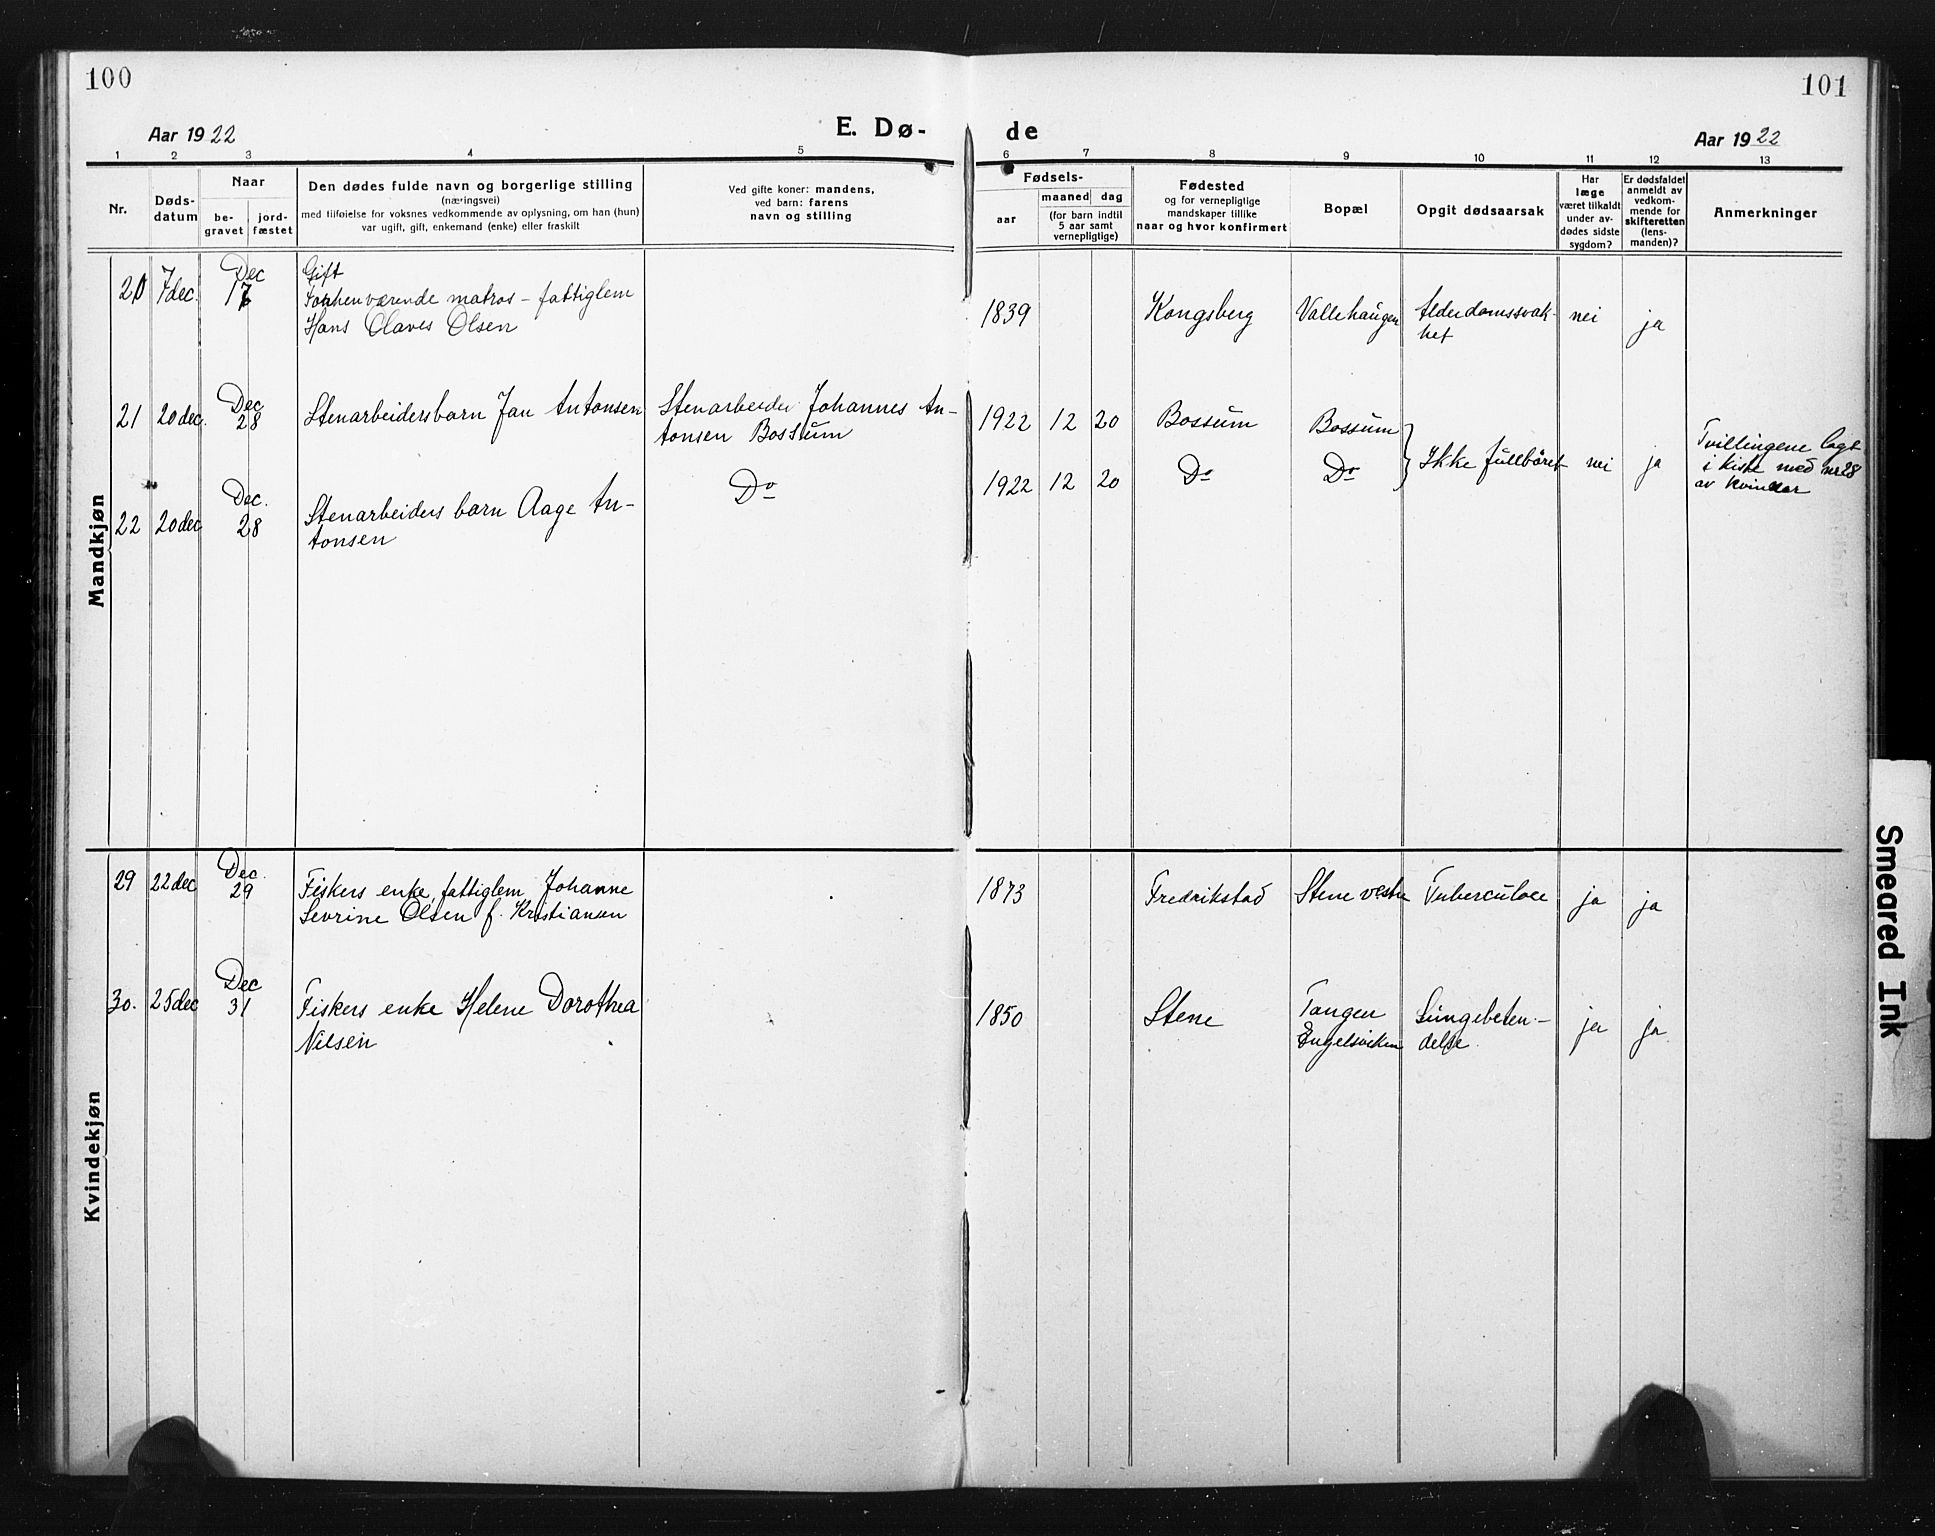 100
101
Aar 1922
E. Dø-
de
Aar 1922
1 2 3 4 5
6 7 8 9 10 11 12 13
Nr.
Døds-
datum
Naar
be-
gravet
jord-
fæstet
Den dødes fulde navn og borgerlige stilling
(næringsvei)
med tilføielse for voksnes vedkommende av oplysning, om han (hun)
var ugift, gift, enkemand (enke) eller fraskilt
Ved gifte koner: mandens,
ved barn: farens
navn og stilling
Fødsels-
aar
maaned dag
(for barn indtil
5 aar samt
vernepligtige)
Fødested
og for vernepligtige
mandskaper tillike
naar og hvor konfirmert
Bopæl
Opgit dødsaarsak
Har
læge
været tilkaldt
under av-
dødes sidste
sygdom?
Er dødsfaldet
anmeldt av
vedkom-
mende for
skifteretten
(lens-
manden)?
Anmerkninger
Mandkjøn
20 7 dec. Dec
17
Gift
Forhenværende matros - fattiglem
Hans Olaves Olsen
1839 Kongsberg Vallehaugen Alderdomssvak-
het
nei ja
21 20 dec. Dec
28
Stenarbeidersbarn Jan Antonsen
Stenarbeider Johannes An-
tonsen Bossum
1922 12 20 Bossum Bossum
Ikke fullbåret nei ja
Tvillingene lagt
i kiste med nr 28
av kvinder
22 20 dec Dec.
28
Stenarbeiders barn Aage An-
tonsen
Do
1922 12 20 Do Do
Kvindekjøn
29 22 dec Dec.
29
Fiskers enke, fattiglem Johanne
Sevrine Olsen f. Kristiansen
1873 Fredrikstad Stene vestre Tuberculose ja ja
30. 25 dec Dec
31
Fiskers enke Helene Dorothea
Nilsen
1850 Stene Tangen
Engelsviken
Lungebeten-
delse.
ja ja.
Smeared Ink